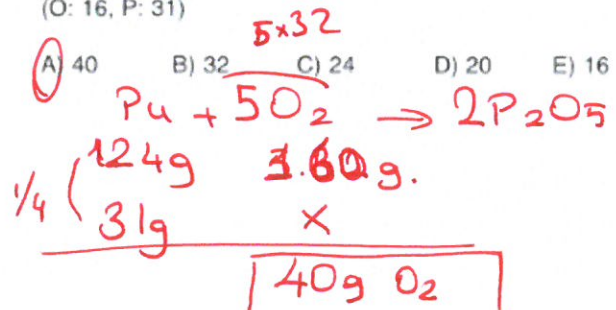 (O: 16, P: 31)
5x32
A) 40 B) 32 C) 24 D) 20 E) 16
P4 + 5O2 → 2P2O5
124g 160g.
1/4
31g X
40g O2